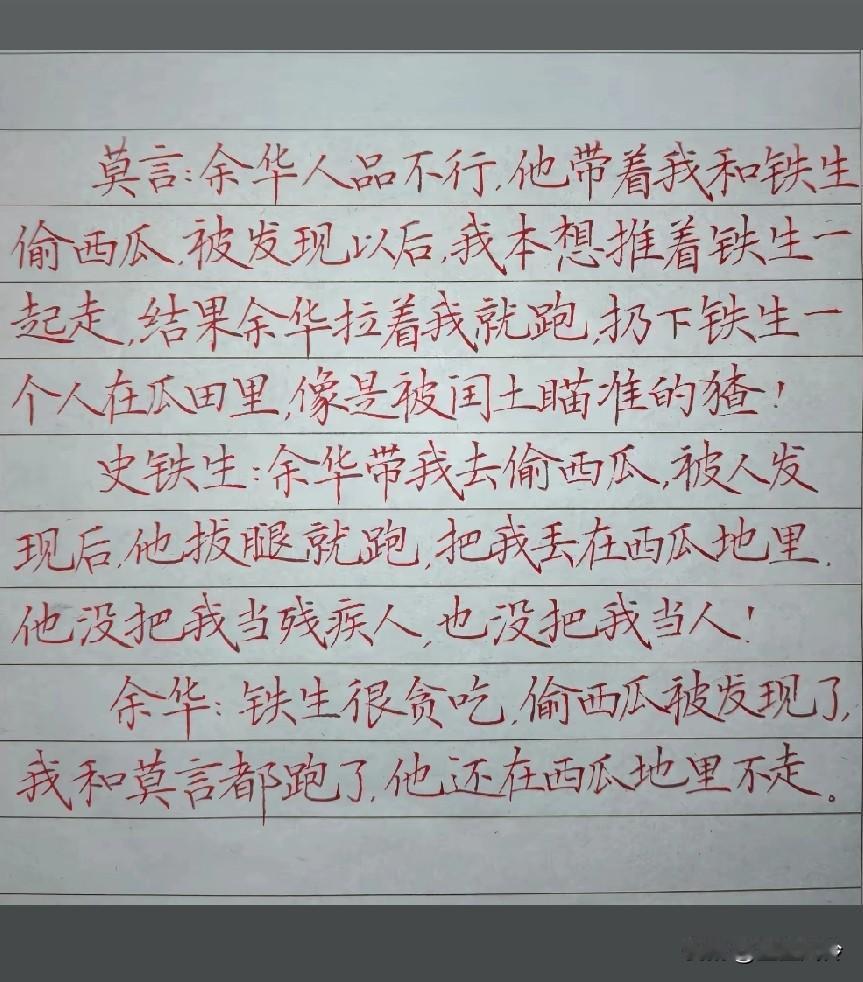 莫言:余华人品不行,他带着我和铁生
偷西瓜,被发现以后,我本想推着铁生一
起走,结果余华拉着我就跑,扔下铁生一
个人在瓜田里,像是被闰土瞄准的猹!
史铁生:余华带我去偷西瓜,被人发
现后,他拔腿就跑,把我丢在西瓜地里.
他没把我当残疾人,也没把我当人!
余华:铁生很贪吃,偷西瓜被发现了,
我和莫言都跑了,他还在西瓜地里不走。